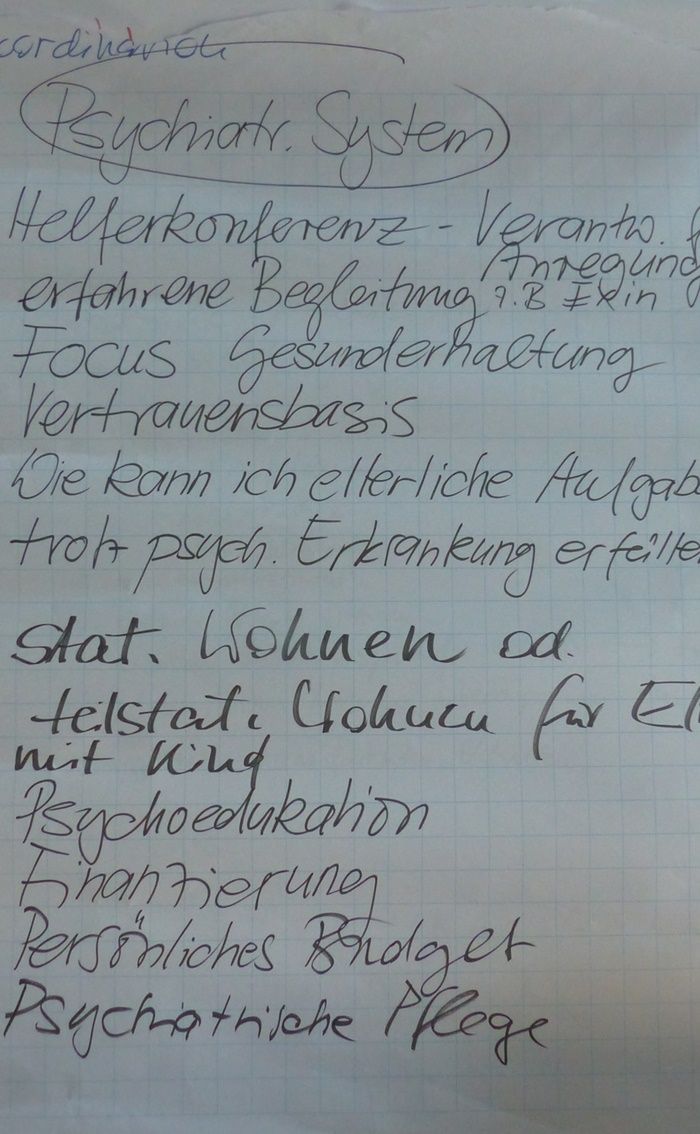 Psychiatr. System
Helferkonferenz - Verantw. f
Anregung
erfahrene Begleitung z.B Ex in
Focus Gesunderhaltung
Vertrauensbasis
Wie kann ich elterliche Aufgab
trotz psych. Erkrankung erfülle
stat. Wohnen od.
teilstat. Wohnen für El
mit Kind
Psychoedukation
Finanzierung
Persönliches Budget
Psychiatrische Pflege